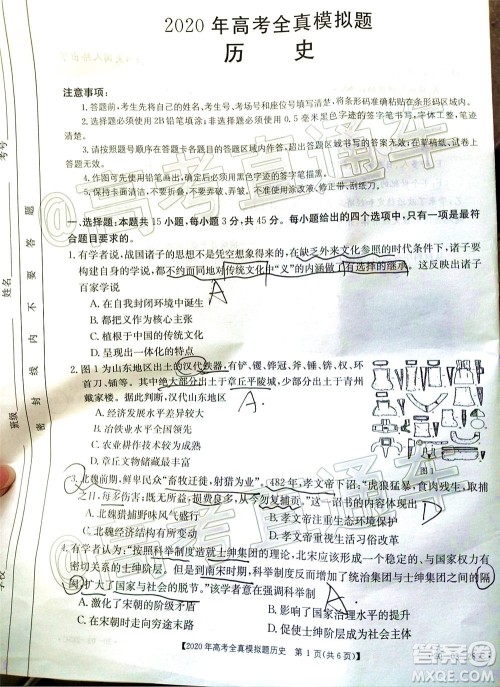 2020年高考全真模拟题
历 史
注意事项：
1.答题前,考生先将自己的姓名、考生号填写清楚,将条形码准确粘贴在条形码区域内。
2.选择题必须使用2B铅笔填涂;非选择题必须使用0.5毫米黑色字迹的签字笔书写,字体工整、笔迹清楚。
4.作图可先使用铅笔画出,确定后必须用黑色字迹的签字笔描黑。
5.保持卡面清洁,不要折叠,不要弄破、弄皱,不准使用涂改液、修正带、刮纸刀。
一、选择题:本题共15小题,每小题3分,共45分。每小题给出的四个选项中,只有一项是最符
合题目要求的。
1.有学者说,战国诸子的思想不是凭空构建的,在缺乏外来文化参照的时代条件下,诸子要
构建自己的思想,都不约而同地对传统文化中“义”的内涵做了有选择的继承。这说明,先秦
百家学说
A.在自我封闭环境中诞生
B.以释义为核心
C.植根于中国的传统文化
D.呈现出一体化的趋势
A
2.图1为山东地区出土的汉代铁器,有铲、镬、铧冠、斧、锤、锛、权、环
首刀、锸等。其中绝大部分出土于章丘平陵城,少部分出土于青州
戴家楼。据此可知,汉代山东地区
A.经济发展水平差异大
B.冶铁业水平全国领先
C.农业耕作技术水平高
D.章丘文物储藏最丰富
A.
图1
3.北魏前期,鲜卑民众“畜牧迁徙,射猎为业”,482年,孝文帝下诏:“虎狼猛暴,食肉残生,取捕
之日,每多伤害;既无所益,损费良多,从今勿复捕贡。”这一诏书的内容体现了
A.北魏猎捕野味风气盛行
B.孝文帝注重生态环境保护
C.北魏儒家思想影响深远
D.孝文帝重视生活习俗改革
4.有学者认为:“按照科举制度造就士绅集团的功能,北宋应基本形成有助于增强国家权力
的士绅阶层,但直到南宋时期,科举制度在扩大了对平民开放的同时加剧了统治集团与士绅之间的隔
阂,扩大了国家与社会的脱节。”该学者意在强调科举制
A.激化了宋朝的阶级矛盾
B.影响了国家治理的功能
C.导致了宋朝走向穷途末路
D.有助于南宋士绅阶层的扩大
2020年高考全真模拟题历史 第1页(共6页)
考号
姓名
班级
学校
密 封 线 内 不 要 答 题
@高考直通车
答案圈
MXQE.COM